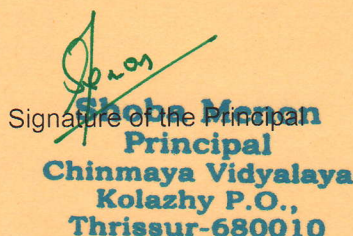 Signature of the Principal
Shoba Menon
Principal
Chinmaya Vidyalaya
Kolazhy P.O.,
Thrissur-680010